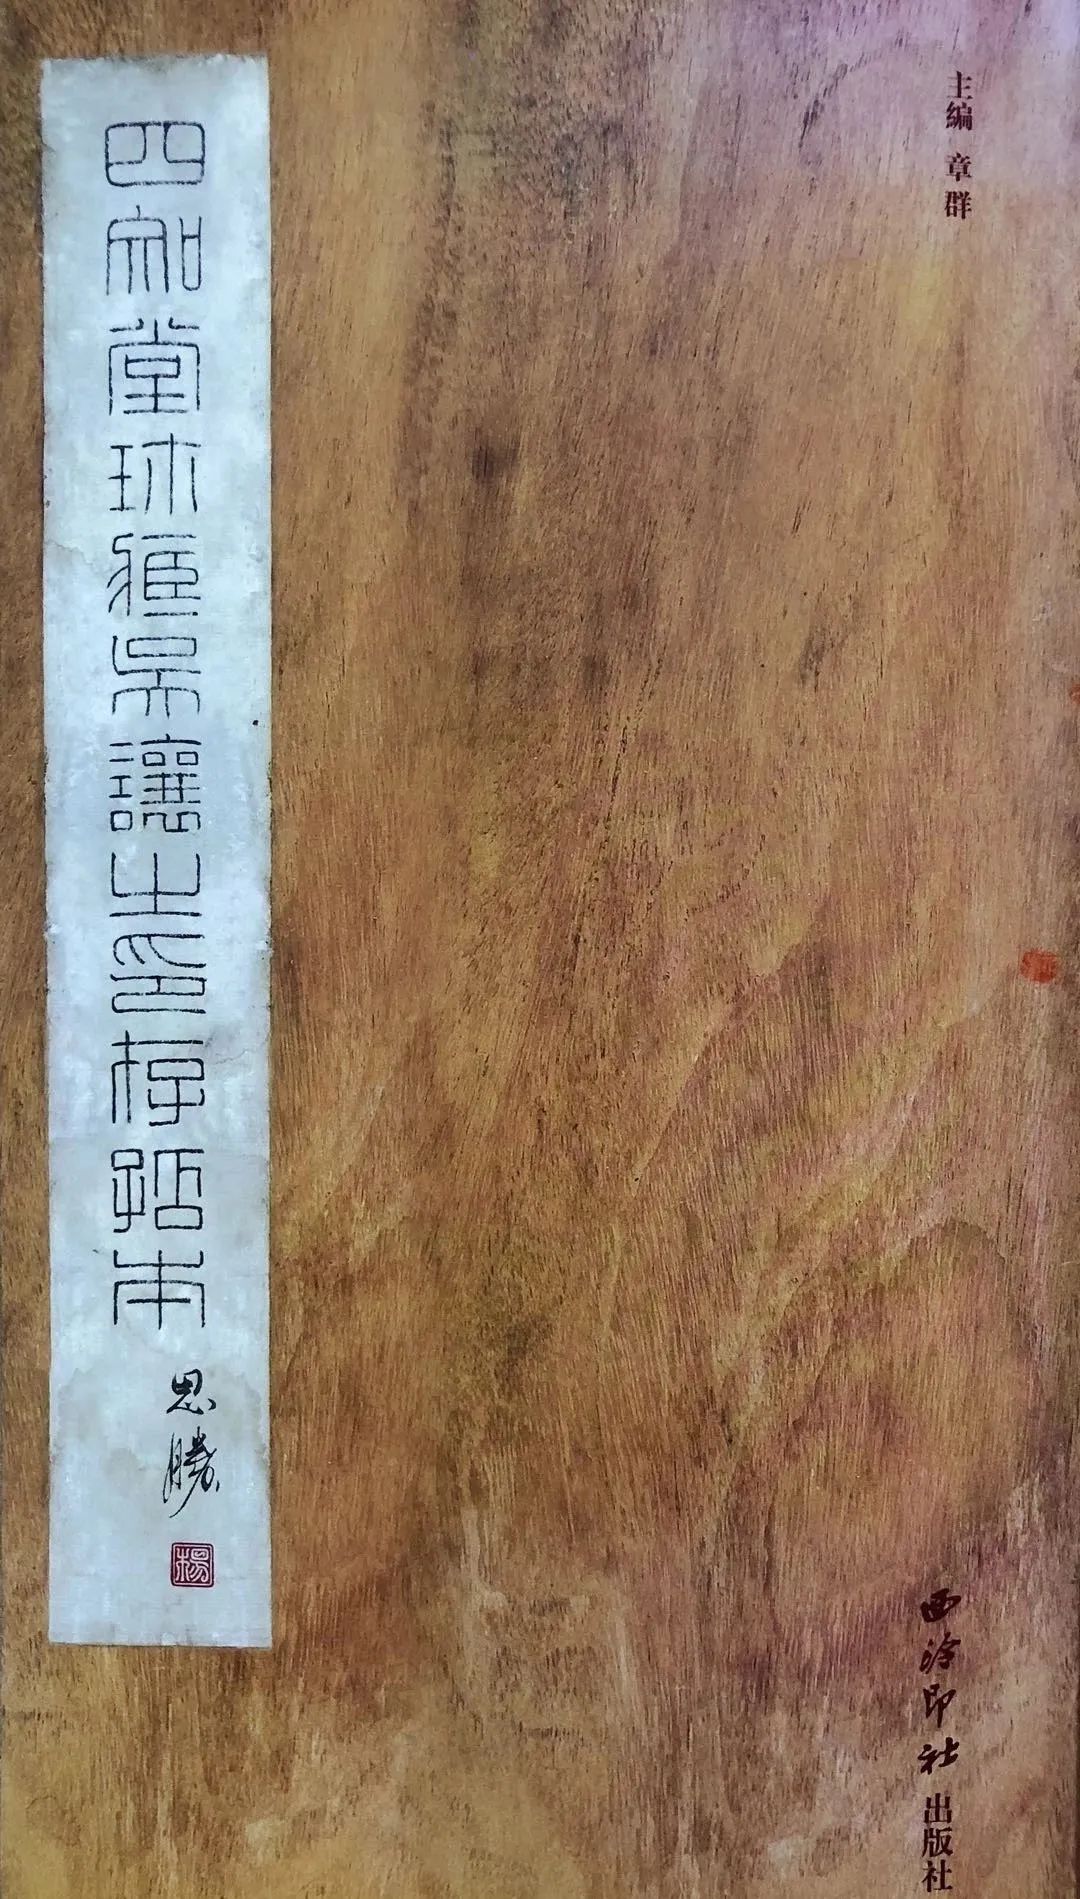 主编 章群
西泠印社出版社
四知堂珎臧吴讓之印存拓本
思勝
楊